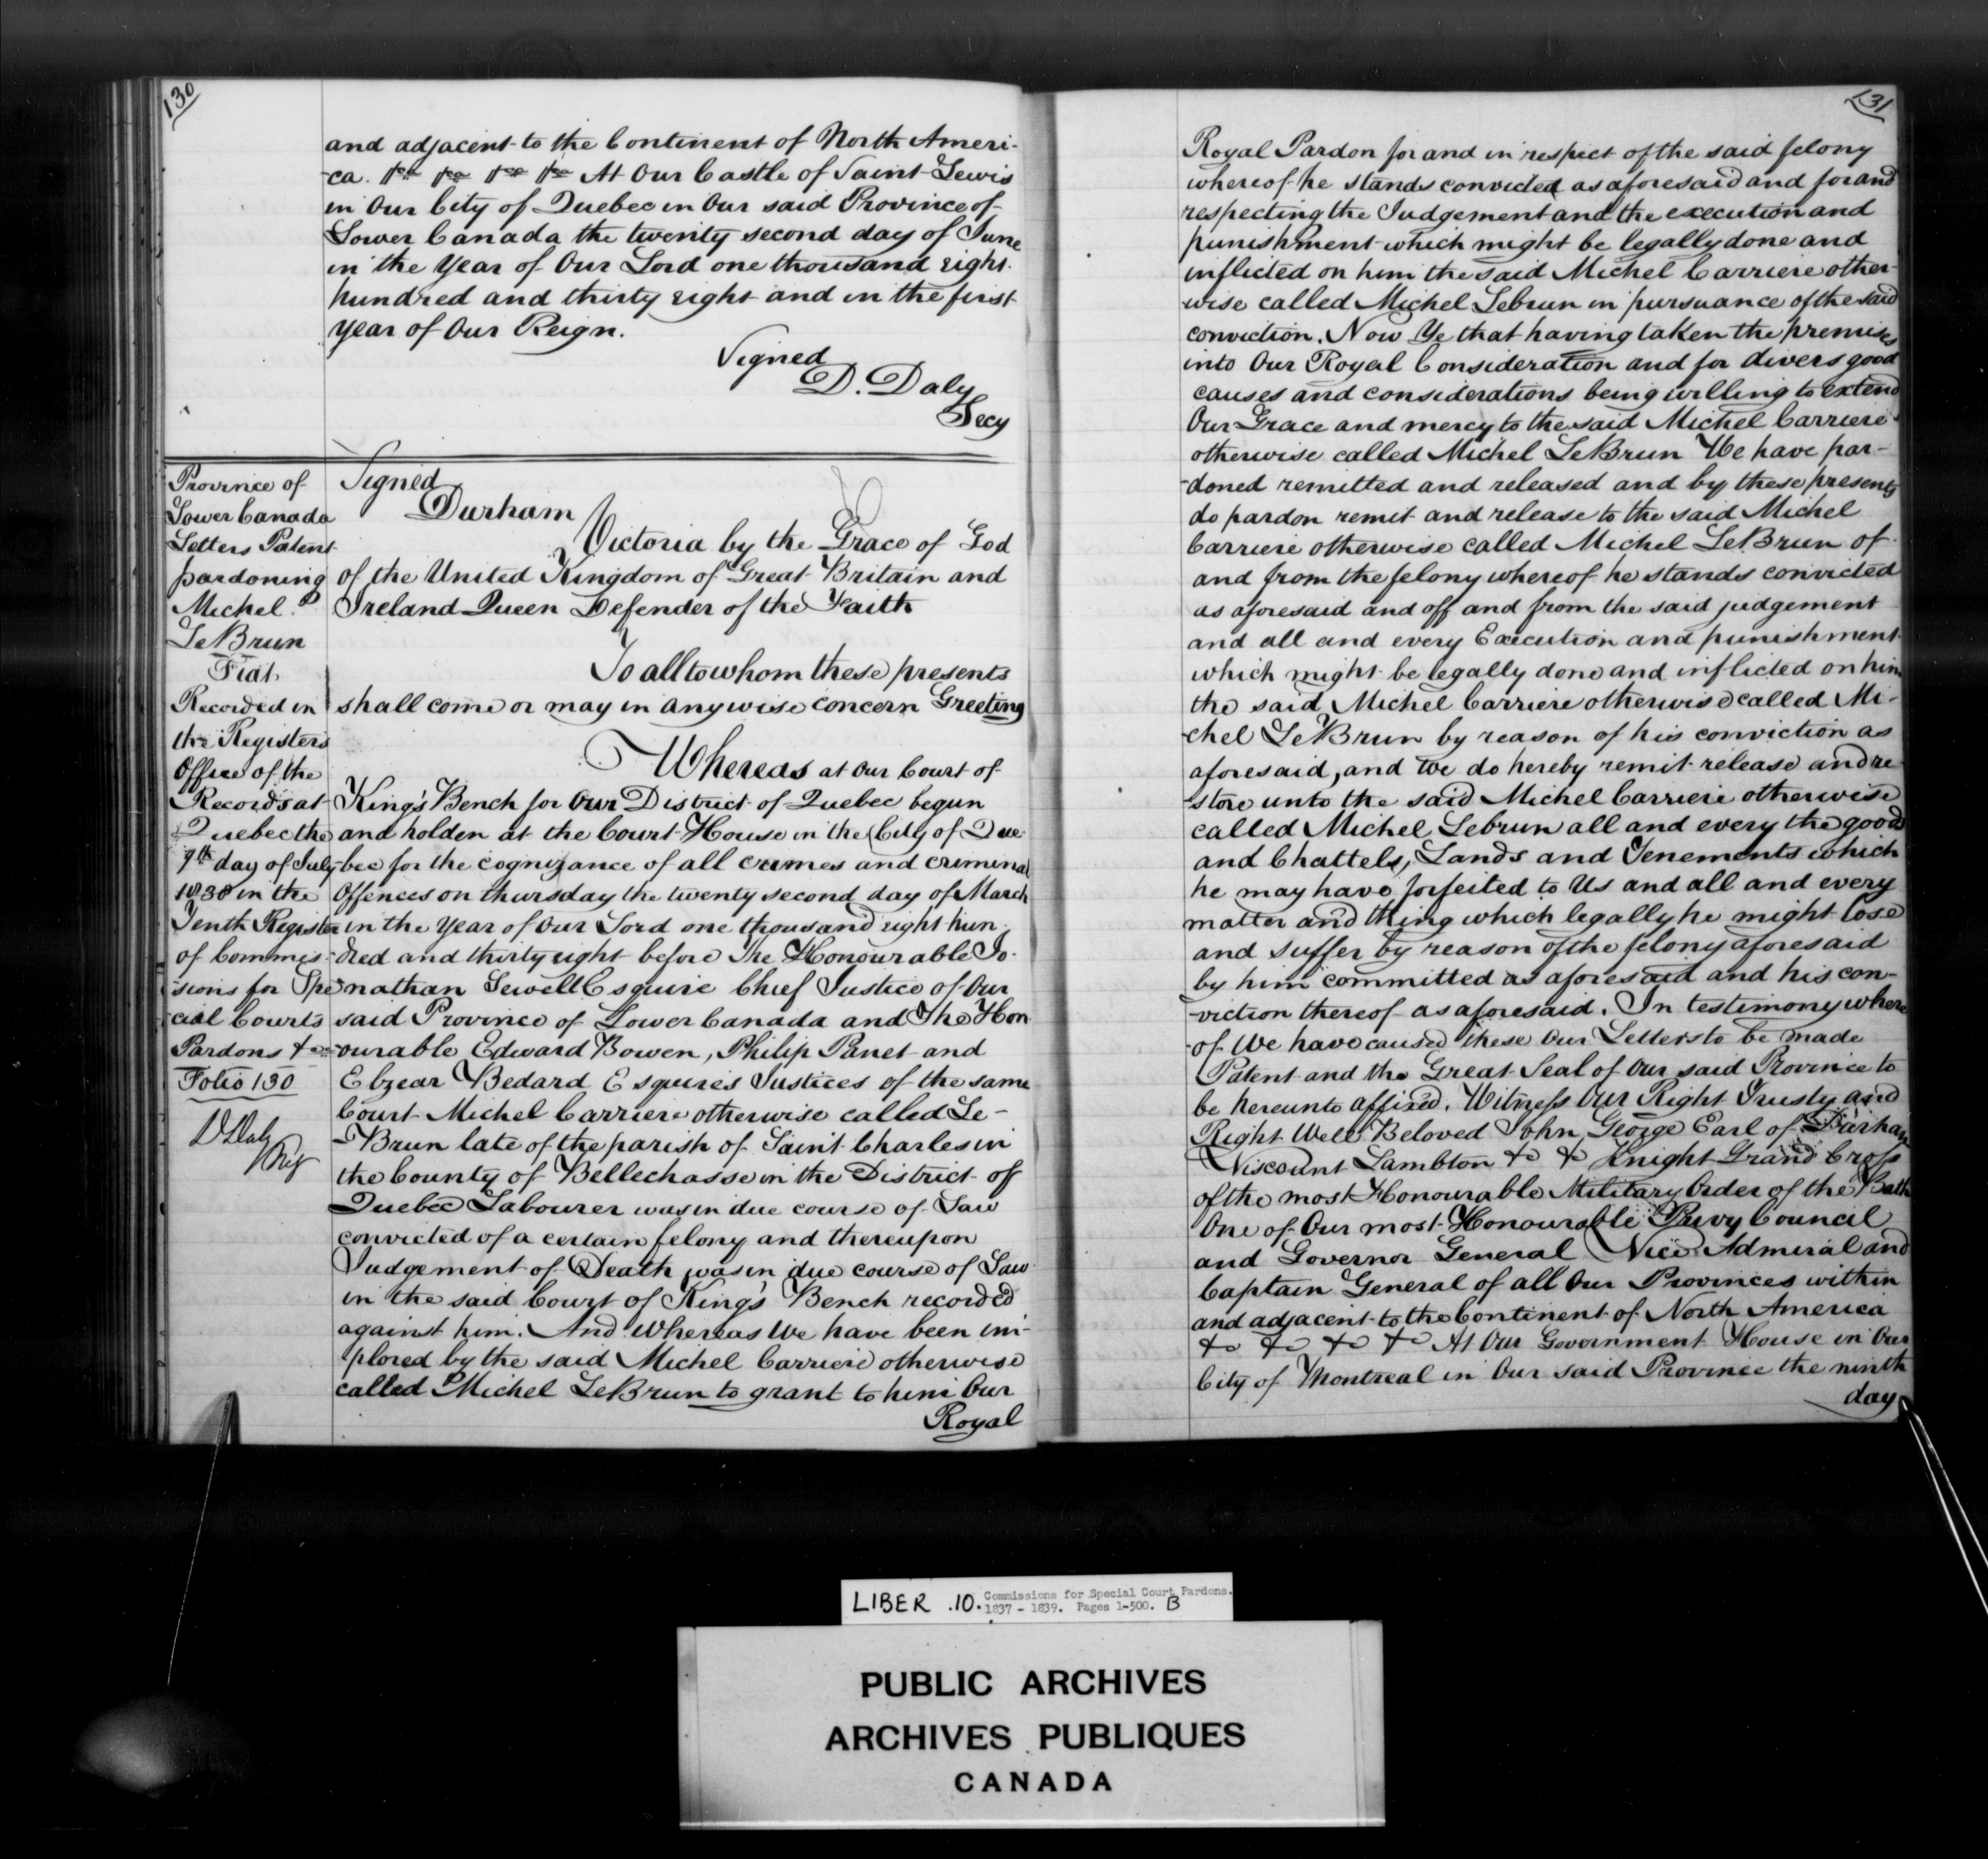 130
and adjacent to the Continent of North Ameri-
-ca. &c &c &c &c At Our Castle of Saint Lewis
in Our City of Quebec in Our said Province of
Lower Canada the twenty second day of June
in the Year of Our Lord one thousand eight
hundred and thirty eight and in the first
year of Our Reign.
Signed
D. Daly
Secy
Province of
Lower Canada
Letters Patent
pardoning
Michel
LeBrun
Fiat
Recorded in
the Registers
Office of the
Records at
Quebec the
9th day of July
1838 in the
Tenth Register
of Commis-
-sions for Spe
-cial Courts
Pardons &c
Folio 130
D Daly
Reg
Signed
Durham
Victoria by the Grace of God
of the United Kingdom of Great Britain and
Ireland Queen Defender of the Faith
To all to whom these presents
shall come or may in anywise concern Greeting
Whereas at Our Court of
King's Bench for Our District of Quebec begun
and holden at the Court House in the City of Que-
-bec for the cognizance of all crimes and criminal
Offences on thursday the twenty second day of March
in the Year of Our Lord one thousand eight hun-
-dred and thirty eight before The Honourable Jo-
nathan Sewell Esquire Chief Justice of Our
said Province of Lower Canada and The Hon-
-ourable Edward Bowen, Philip Panet and
Elzear Bedard Esquires Justices of the same
Court Michel Carriere otherwise called Le-
-Brun late of the parish of Saint Charles in
the County of Bellechasse in the District of
Quebec Labourer was in due course of Law
convicted of a certain felony and thereupon
Judgement of Death was in due course of Law
in the said Court of King's Bench recorded
against him. And Whereas We have been im-
plored by the said Michel Carriere otherwise
called Michel LeBrun to grant to him Our
Royal
131
Royal Pardon for and in respect of the said felony
whereof he stands convicted as aforesaid and for and
respecting the Judgement and the execution and
punishment which might be legally done and
inflicted on him the said Michel Carriere other-
wise called Michel Lebrun in pursuance of the said
conviction. Now Ye that having taken the premises
into Our Royal Consideration and for divers good
causes and considerations being willing to extend
Our Grace and mercy to the said Michel Carriere
otherwise called Michel LeBrun We have par-
-doned remitted and released and by these presents
do pardon remit and release to the said Michel
Carriere otherwise called Michel LeBrun of
and from the felony whereof he stands convicted
as aforesaid and off and from the said judgement
and all and every Execution and punishment
which might be legally done and inflicted on him
the said Michel Carriere otherwise called Mi-
-chel LeBrun by reason of his conviction as
aforesaid, and We do hereby remit release and re-
-store unto the said Michel Carriere otherwise
called Michel Lebrun all and every the goods
and Chattels, Lands and Tenements which
he may have forfeited to Us and all and every
matter and thing which legally he might lose
and suffer by reason of the felony aforesaid
by him committed as aforesaid and his con-
-viction thereof as aforesaid. In testimony where
-of We have caused these Our Letters to be made
Patent and the Great Seal of Our said Province to
be hereunto affixed. Witness Our Right Trusty and
Right Well Beloved John George Earl of Durham
Viscount Lambton &c &c Knight Grand Cross
of the most Honourable Military Order of the Bath
One of Our most Honourable Privy Council
and Governor General Vice Admiral and
Captain General of all Our Provinces within
and adjacent to the Continent of North America
&c &c &c &c At Our Government House in Our
City of Montreal in Our said Province the ninth
day
LIBER .10. Commissions for Special Court Pardons.
1837 - 1839. Pages 1-500. B
PUBLIC ARCHIVES
ARCHIVES PUBLIQUES
CANADA